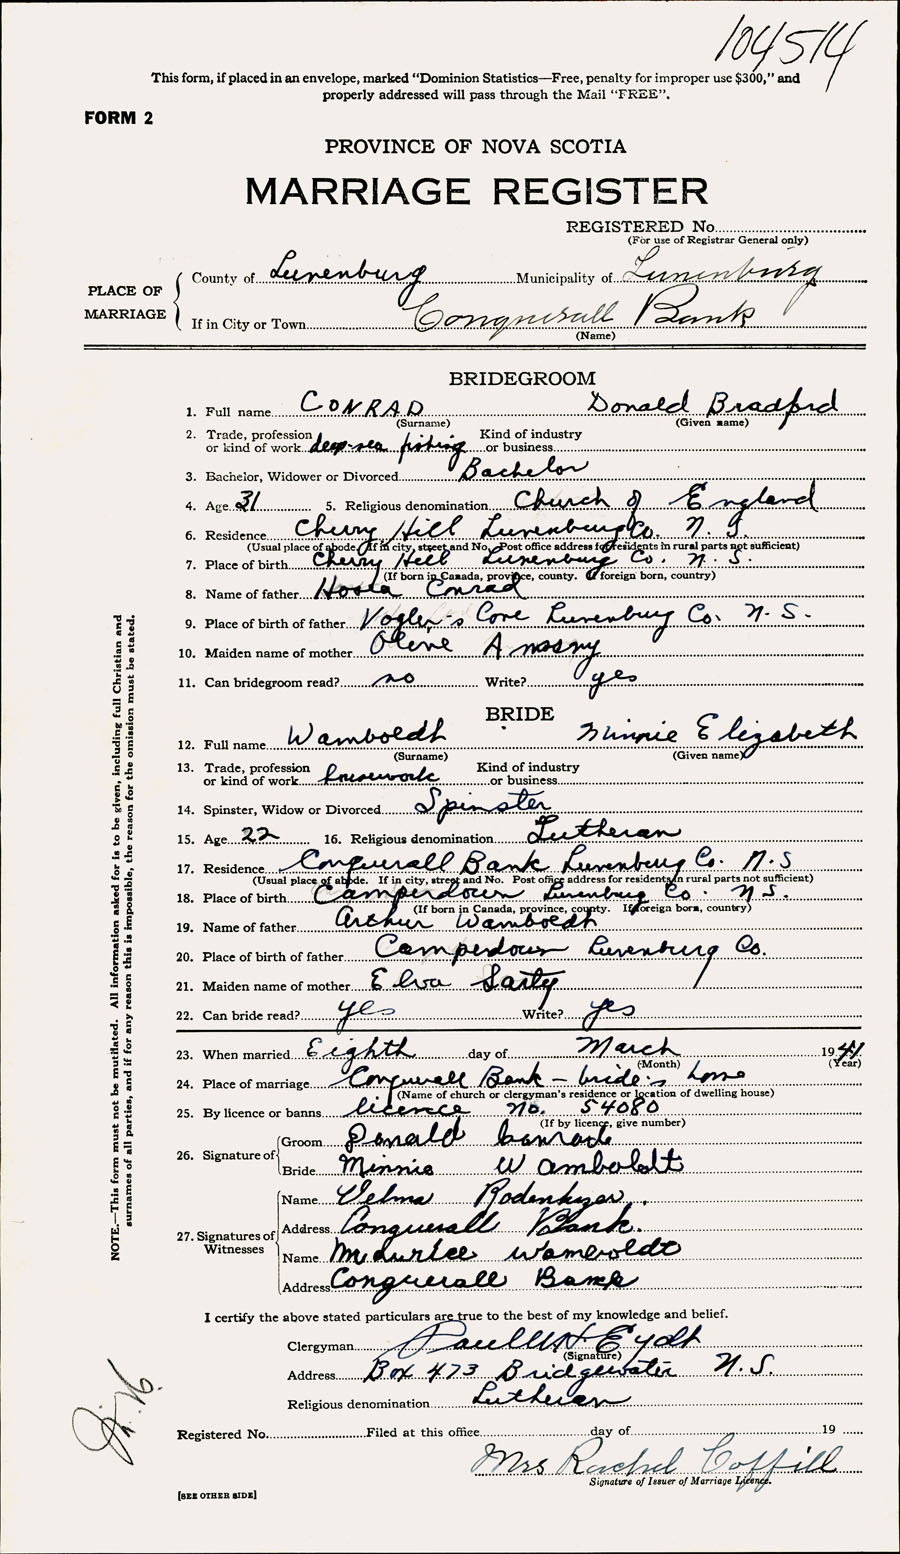 104514
This form, if placed in an envelope, marked "Dominion Statistics—Free, penalty for improper use $300," and
properly addressed will pass through the Mail "FREE".
FORM 2
PROVINCE OF NOVA SCOTIA
MARRIAGE REGISTER
REGISTERED No.
(For use of Registrar General only)
PLACE OF MARRIAGE
County of Lunenburg Municipality of Lunenburg
If in City or Town Conquerall Bank
(Name)
BRIDEGROOM
1. Full name CONRAD Donald Bradford
(Surname) (Given name)
2. Trade, profession or kind of work deep-sea fishing Kind of industry or business
3. Bachelor, Widower or Divorced Bachelor
4. Age 31 5. Religious denomination Church of England
6. Residence Cherry Hill Lunenburg Co. N.S.
(Usual place of abode. If in city, street and No. Post office address for residents in rural parts not sufficient)
7. Place of birth Cherry Hill Lunenburg Co. N.S.
(If born in Canada, province, county. If foreign born, country)
8. Name of father Conrad
9. Place of birth of father Vogler's Cove Lunenburg Co. N.S.
10. Maiden name of mother Olive
11. Can bridegroom read? no Write? yes
BRIDE
12. Full name Wamboldt Minnie Elizabeth
(Surname) (Given name)
13. Trade, profession or kind of work housework Kind of industry or business
14. Spinster, Widow or Divorced Spinster
15. Age 22 16. Religious denomination Lutheran
17. Residence Conquerall Bank Lunenburg Co. N.S
(Usual place of abode. If in city, street and No. Post office address for residents in rural parts not sufficient)
18. Place of birth Camperdown Lunenburg Co. N.S.
(If born in Canada, province, county. If foreign born, country)
19. Name of father Arthur Wamboldt
20. Place of birth of father Camperdown Lunenburg Co.
21. Maiden name of mother Elva Sarty
22. Can bride read? yes Write? yes
23. When married Eighth day of March 1941
(Month) (Year)
24. Place of marriage Conquerall Bank - bride's home
(Name of church or clergyman's residence or location of dwelling house)
25. By licence or banns licence No. 54080
(If by licence, give number)
26. Signature of
Groom Donald Conrad
Bride Minnie Wamboldt
27. Signatures of Witnesses
Name Velma Rodenhizer
Address Conquerall Bank.
Name Maurice Wamboldt
Address Conquerall Bank
I certify the above stated particulars are true to the best of my knowledge and belief.
Clergyman Eydt
(Signature)
Address Box 473 Bridgewater N.S.
Religious denomination Lutheran
Registered No. Filed at this office day of 19
Mrs Rachel Coffill
Signature of Issuer of Marriage Licence.
[SEE OTHER SIDE]
NOTE.—This form must not be mutilated. All information asked for is to be given, including full Christian and
surnames of all parties, and if for any reason this is impossible, the reason for the omission must be stated.